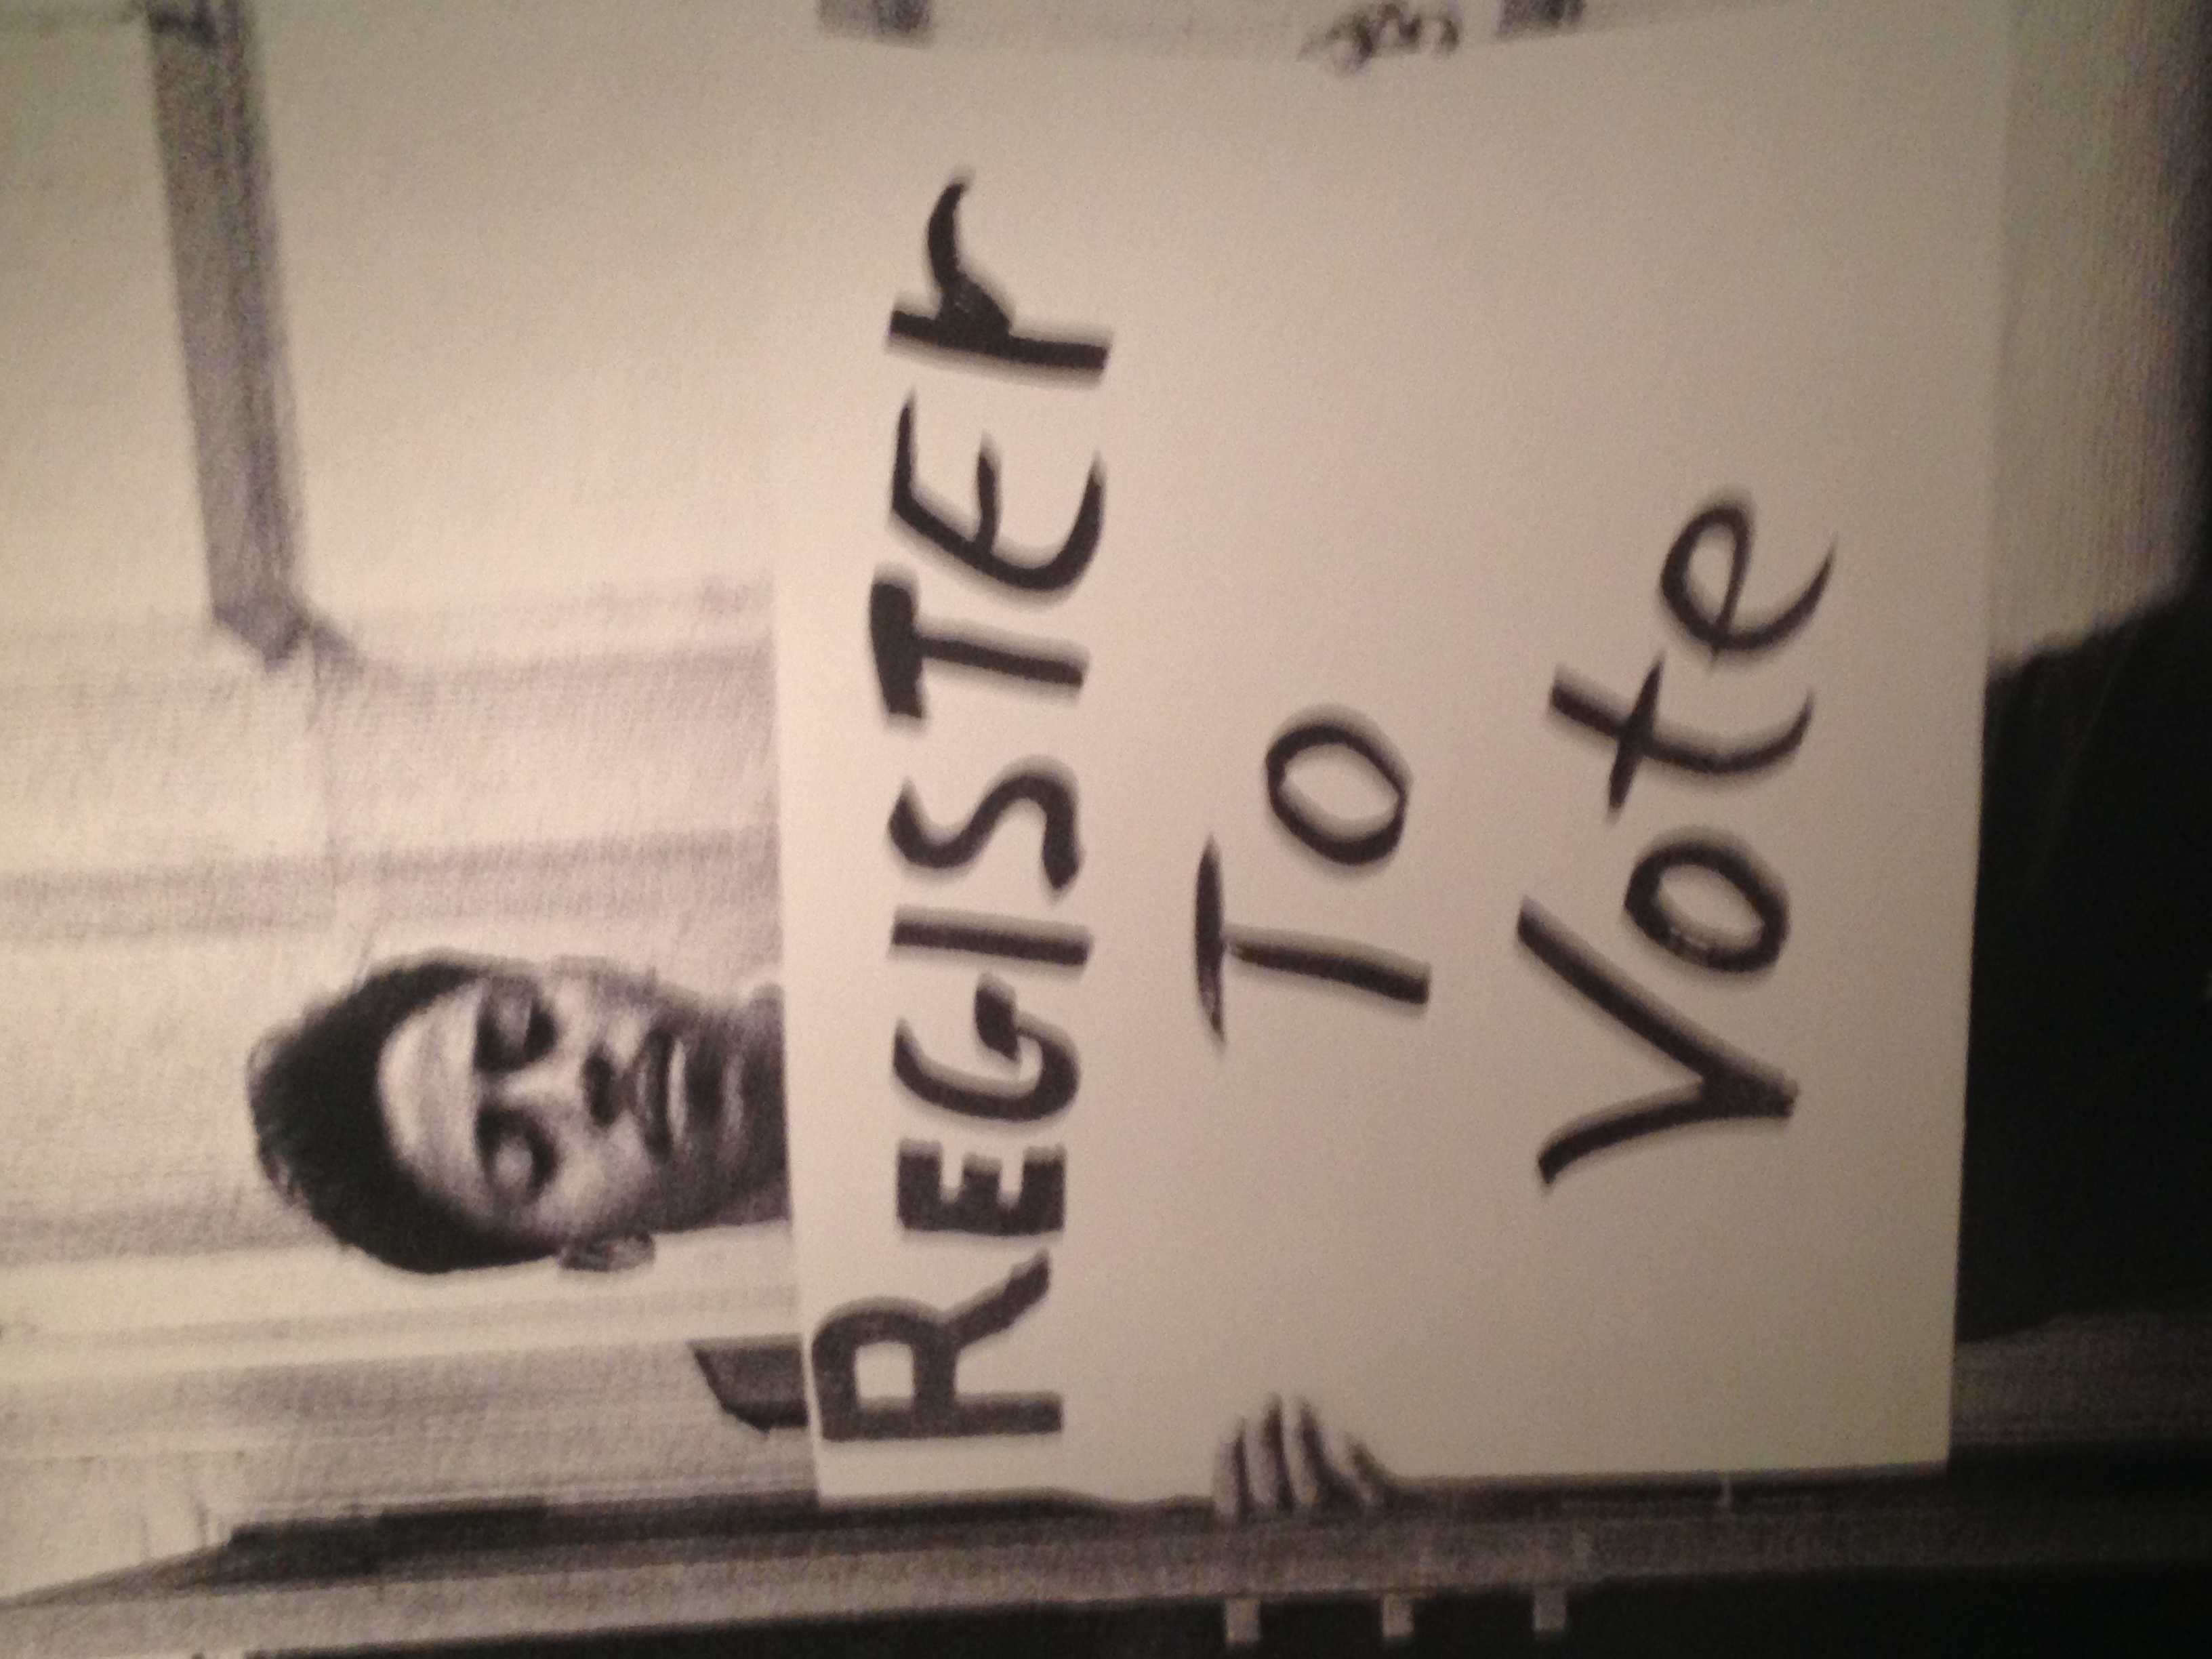 REGISTEr
To
Vote